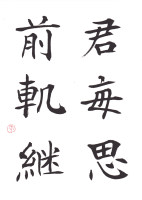 君每思
前軌継